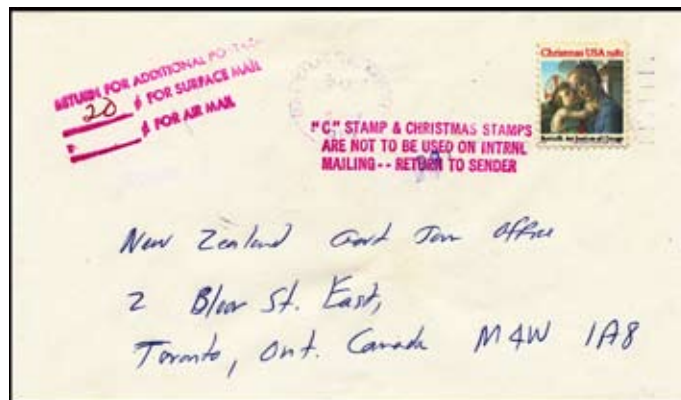 RETURN FOR ADDITIONAL POSTAGE
20 ¢ FOR SURFACE MAIL
¢ FOR AIR MAIL
"C" STAMP & CHRISTMAS STAMPS
ARE NOT TO BE USED ON INTRNL
MAILING -- RETURN TO SENDER
Christmas USA 1981
New Zealand Govt Tour Office
2 Bloor St. East,
Toronto, Ont. Canada M4W 1A8